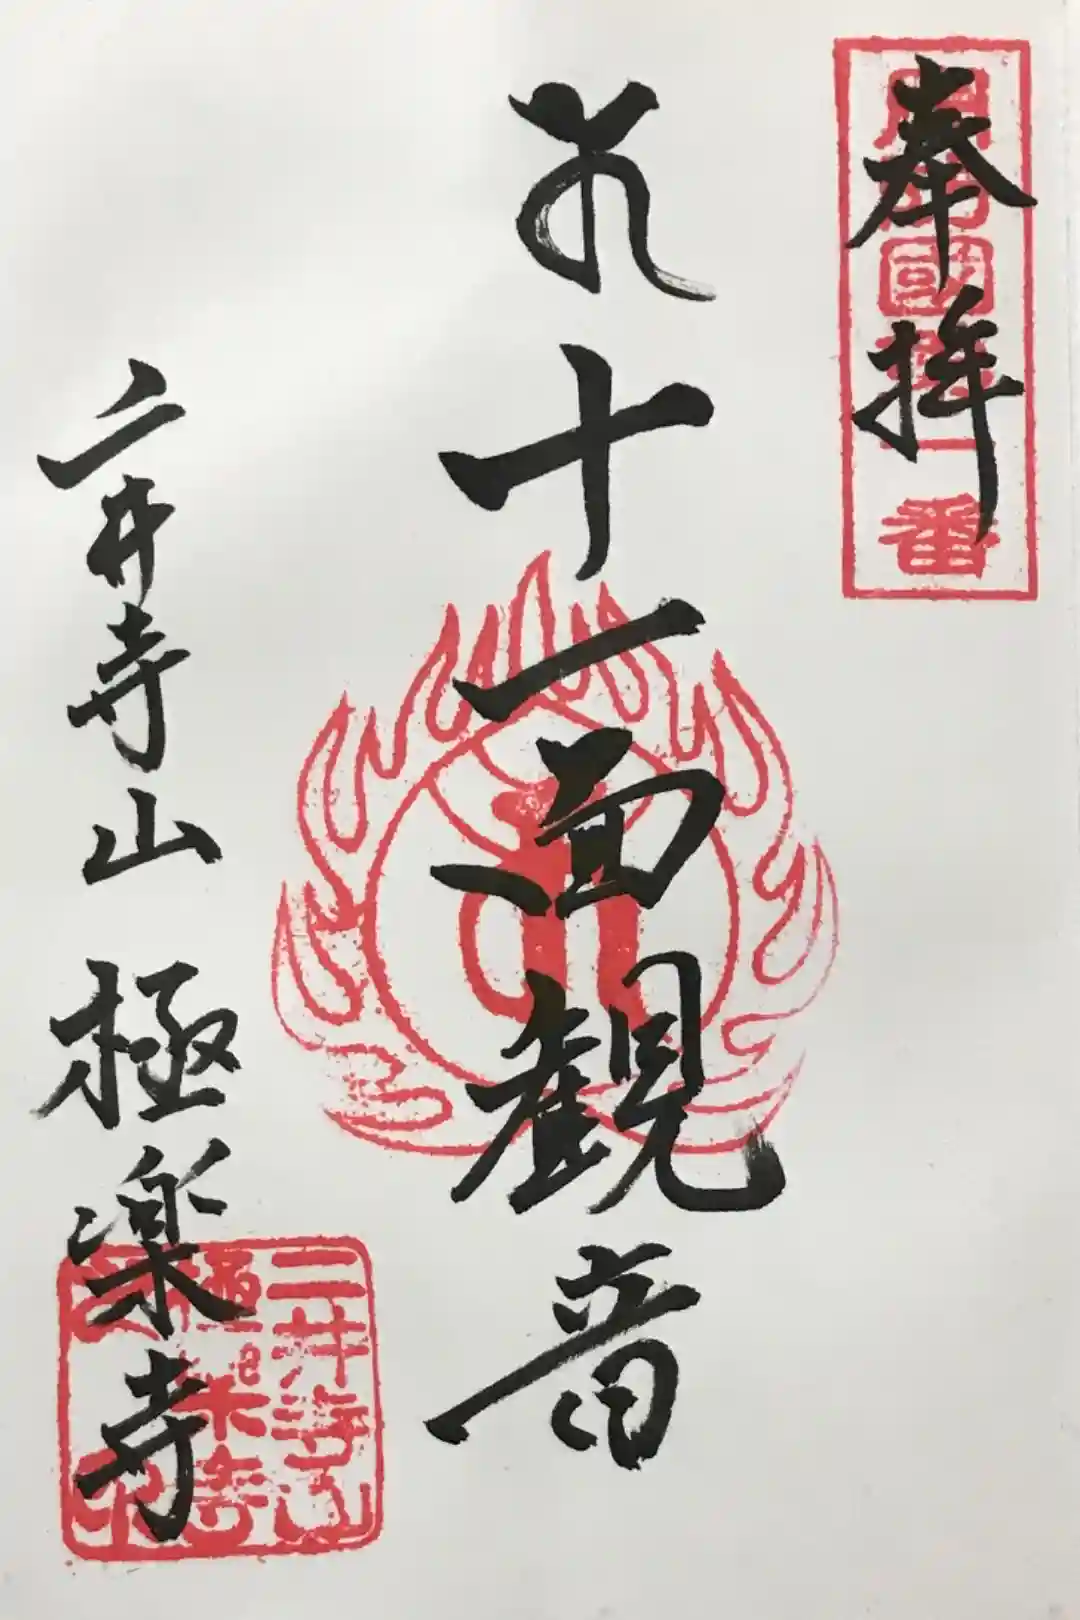 奉拝
十一面観音
二井寺山 極楽寺
二井寺山
極楽寺